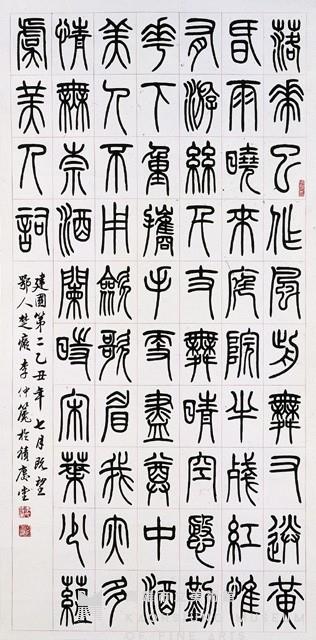 落花已作風前舞又送黃
昏雨曉來庭院半殘紅惟
有游絲千丈舞晴空慇勤
花下重攜手更盡尊中酒
美人不用斂歌眉我亦多
情無奈酒闌時宋葉少蘊
虞美人詞
建國第二乙丑年七月既望
鄂人楚李仲篪於積慶堂
MUSEUM
OF FINE ART